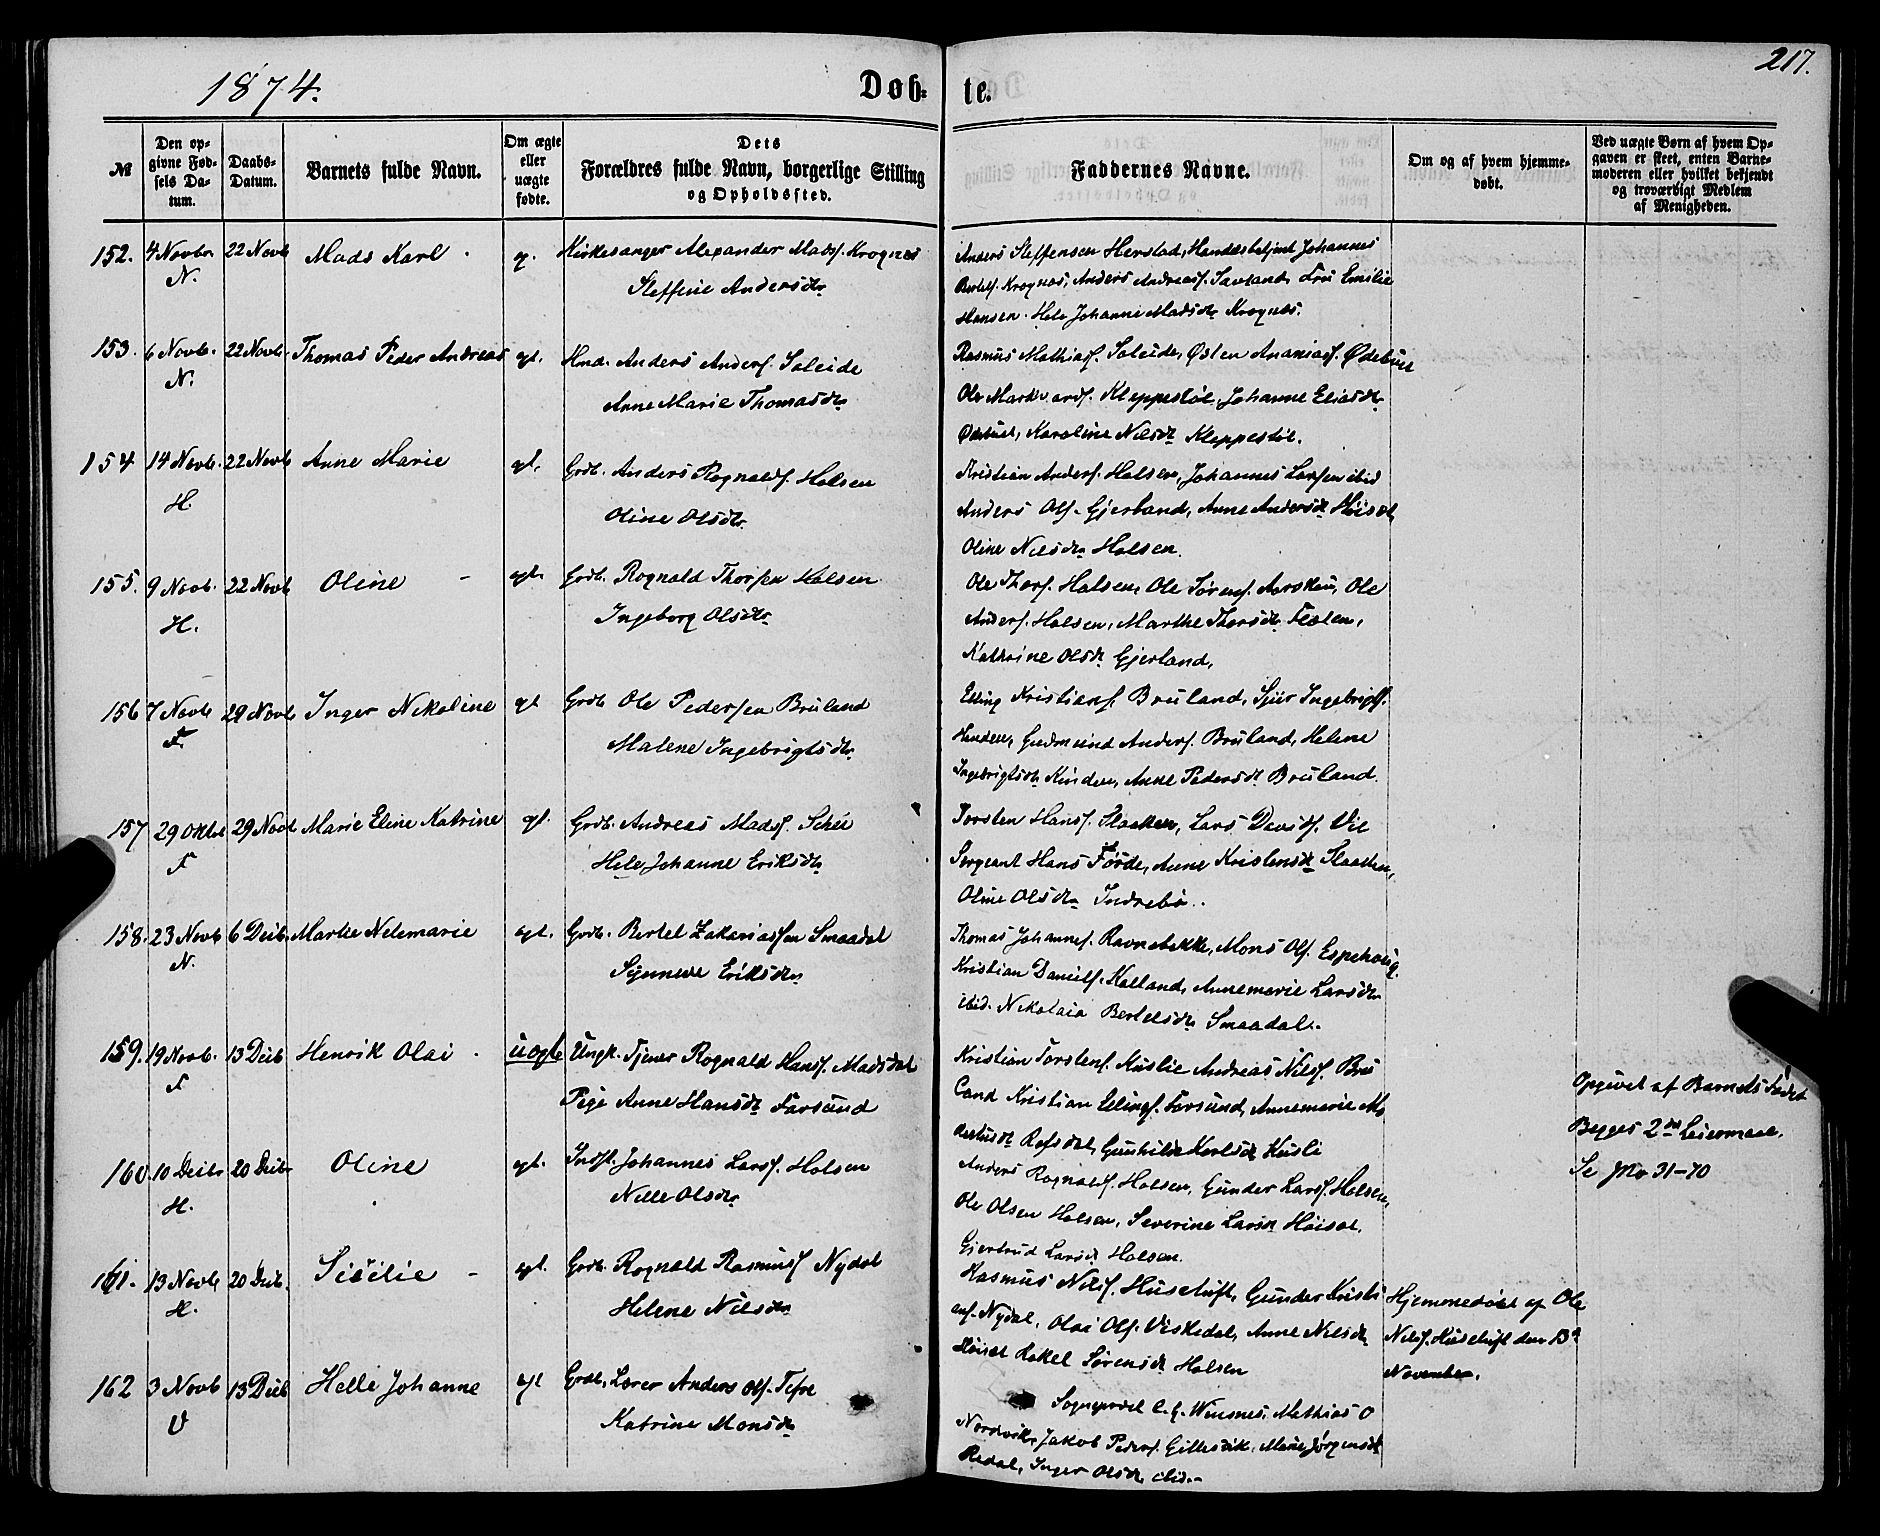 1874.
Døb-
te.
217.
№
Den op-
givne Fød-
sels Da-
tum.
Daabs-
Datum.
Barnets fulde Navn.
Om ægte
eller
uægte
fødte.
Dets
Forældres fulde Navn, borgerlige Stilling
og Opholdssted.
Faddernes Navne.
Om og af hvem hjemme-
døbt.
Ved uægte Børn af hvem Op-
gaven er skeet, enten Barne-
moderen eller hvilket bekjendt
og troværdigt Medlem
af Menigheden.
152. 4 Novbr 22 Novb Mads Karl g. Kirkesanger Alexander Madsf. Krognes
N. Steffine Andersdtr
Anders Steffensen Herstad, Handelsbetjent Johannes
Bertelf. Krognæs, Anders Andreasf. Savland, Fru Emilie
Hansen. Hele Johanne Madsdtr Krognæs.
153. 6 Novb. 22 Novb. Thomas Peder Andreas egt. Hmd. Anders Andersf. Soleide
N. Anne Marie Thomasdtr
Rasmus Mathiasf. Soleide, Østen Ananiasf. Ødebuet
Ole Markvardf. Kleppestøl, Johanne Eliasdtr
Ødebuet, Karoline Nilsdtr Kleppestøl.
154 14 Novb. 22 Novb Anne Marie egt. Grdb. Anders Rognaldf. Holsen
H. Oline Olsdtr
Kristian Andersf. Holsen, Johannes Larssen ibid
Anders Olsf. Gjerland, Anne Andersdtr Høiset,
Oline Nilsdtr Holsen.
155. 9 Novb. 22 Novb Oline - egt. Grdb. Rognald Thorssen Holsen
H. Ingeborg Olsdtr
Ole Thorsf. Holsen, Ole Sørensf. Aarskau, Ole
Andersf. Holsen, Marthe Thorsdtr Flølen,
Kathrine Olsdtr Gjerland,
156 7 Novb 29 Novb Inger Nikoline egt Grdb Ole Pederssen Bruland
F. Malene Ingebrigtsdtr
Elling Kristiansf. Bruland, Sjur Ingebrigtsf.
Gudmund Andersf. Bruland, Helene
Ingebrigtsdtr Kinden, Anne Pedersdtr Bruland.
157 29 Oktbr 29 Novb Marie Eline Katrine egt. Grdb. Andreas Madsf. Schei
F Hele Johanne Eriksdtr
Torsten Hansf. Slaatten, Lars Davidsf. Vie
Sergeant Hans Førde, Anne Kristensdtr Slaatten,
Oline Olsdtr Indrebø.
158. 23 Novb 6 Decb. Marthe Nelemarie egt. Grdb. Bertel Zakariassen Smaadal
N. Synneve Eriksdtr
Thomas Johannesf. Ravnebække, Mons Olsf. Espehoug
Kristian Danielsf. Kalland, Annemarie Larsdtr
ibid. Nikolaia Bertelsdtr Smaadal.
159. 19 Novb. 13 Decb Henrik Olai - uægte Ungk. Tjener Rognald Hansf. Madsdal
F Pige Anne Hansdtr Farsund
Kristian Torstensf. Huslie Andreas Nilsf. Bru
land Kristian Ellingsf. Farsund, Annemarie M
Refsdal, Gunhilde Karlsdtr Husli
Opgivet af Barnets Fader
Begges 2den Leiermaal.
Se No 31-70
160. 10 Decbr 20 Decbr Oline egt. Indst. Johannes Larsf. Holsen
H. Nille Olsdtr
Anders Rognaldf. Holsen, Gunder Larsf. Holsen,
Ole Olsen Holsen, Severine Larsdtr Høiset,
Gjertrud Larsdtr Holsen.
161. 13 Novb 20 Decb. Sisilie - egt. Grdb. Rognald Rasmusf Nydal
H. Helene Nilsdtr
Rasmus Nilsf. Huseluft, Gunder Kristi
ansf. Nydal, Olai Olsf. Viskedal, Anne Nilsdtr
Høiset Rakel Sørensdtr Holsen
Hjemmedøbt af Ole
Nilsf. Huseluft den 13d
November.
162 3 Novb 13 Decb Helle Johanne egt Grdb. Lærer Anders Olsf. Tefre
V Katrine Monsdtr
Sogneprest C. G. Wensnes, Mathias O
Nordvik, Jakob Pedersf. Gillesvik, Marie Jørgensdtr
Redal, Inger Olsdtr ibid.